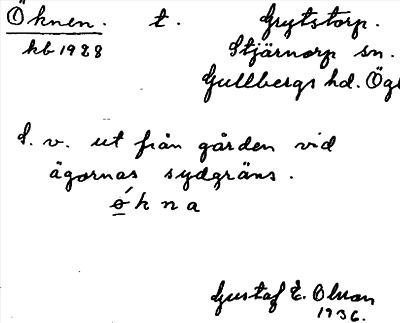 Öknen. t. Grytstorp.
kb 1928 Stjärnorp sn.
Gullbergs hd. Ögl
S. v. ut från gården vid
ägornas sydgräns.
ǿkna
Gustaf E. Olsson
1936.